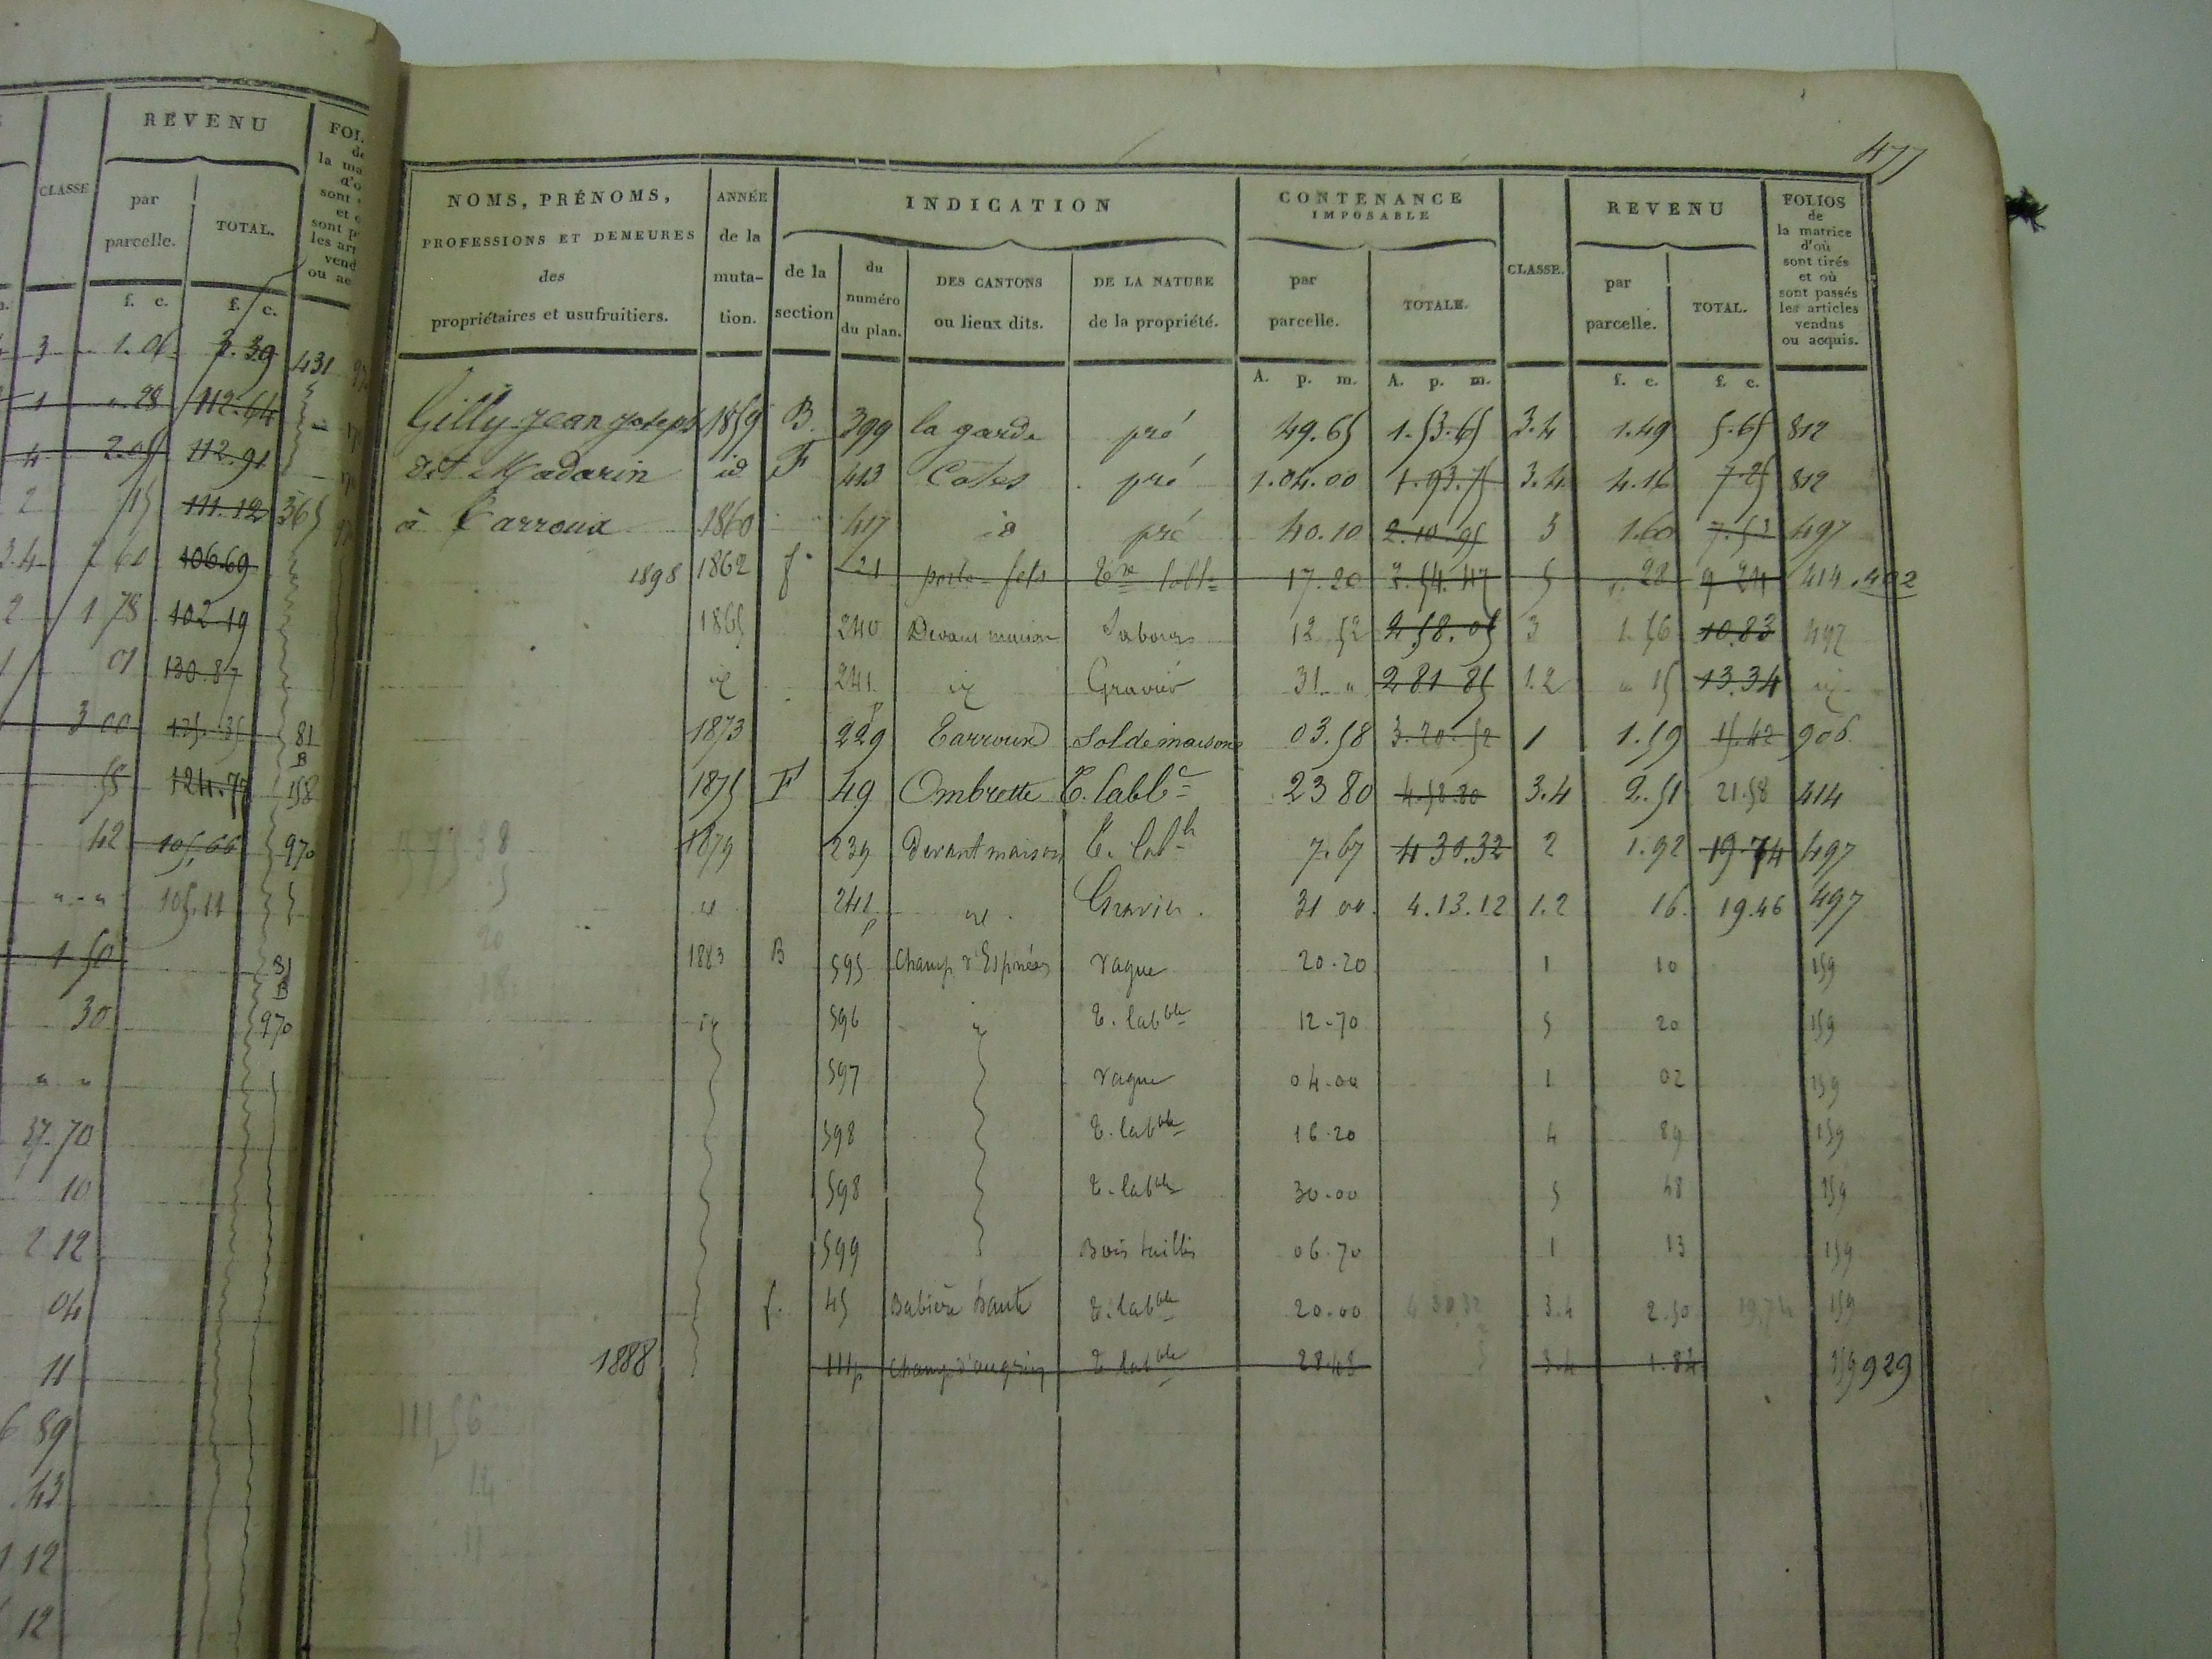 REVENU
FOL.
CLASSE
par
parcelle.
TOTAL.
f. c.
f. c.
3 1. 3.39 431
1 ".28 112.64
4 2.05 112.91
2 15 111.12 365
3.4 61 106.69
2 1 78 102.19
1 01 130.87
3 00 81
B
58 124.77 158
42 105,66 970
"." 105.11
1 50 81
B
30 970
" "
37.70
10
2 12
04
11
6 89
43
1 12
12
477
NOMS, PRÉNOMS,
PROFESSIONS ET DEMEURES
des
propriétaires et usufruitiers.
ANNÉE
de la
muta-
tion.
INDICATION
de la
section
du
numéro
du plan.
DES CANTONS
ou lieux dits.
DE LA NATURE
de la propriété.
CONTENANCE
IMPOSABLE
par
parcelle.
TOTALE.
CLASSE.
REVENU
par
parcelle.
TOTAL.
FOLIOS
de
la matrice
d'où
sont tirés
et où
sont passés
les articles
vendus
ou acquis.
A. p. m. A. p. m. f. c. f. c.
Gilly jean joseph 1859 B. 399 la garde pré 49.65 1.53.65 3.4 1.49 5.65 812
dit Madarin id F 413 Cotes pré 1.04.00 1.93.75 3.4 4.16 7.25 812
à Tarroux 1860 417 id pré 40.10 2.10.95 5 1.60 7.53 497
1898 1862 f 21 17.20 2.54.47 5 ".28 9 24 414.402
1865 240 Devant maison Labour 12 52 2.58.05 3 1.56 10.83 497
id 241 p id Gravier 31 " 2 81 85 1.2 " 15 13.34 id
1873 229 Tarroux Sol de maison 03.58 3.20.52 1 1.59 15.42 906
1875 F 49 Ombrette T. labl.e 23 80 4.58.80 3.4 2.51 21.58 414
1879 239 Devant maison T. lab.le 7.67 4 30.32 2 1.92 19.74 497
id 241 p id Gravier. 31 00. 4.13.12 1.2 16. 19.46 497
1883 B 595 vague 20.20 1 10 159
id 596 id T. labble 12-70 5 20 159
597 vague 04-00 1 02 159
598 T. labble 16.20 4 89 159
598 T. labble 30-00 5 48 159
599 Bois taillis 06.70 1 13 159
f. 45 haute T. labble 20.00 4 30,32 3.4 2.50 19.74 159
1888 111p T labble 28.43 3.4 1.84 159 929
111,56
14
11